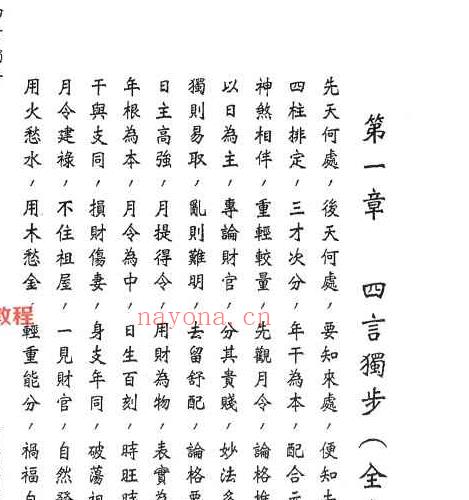 第一章　四言獨步（全
先天何處，後天何處，要知來處，便知
四柱排定，三才次分，年干為本，配合
神煞相伴，重輕較量，先觀月令，論格推
以日為主，專論財官，分其貴賤，妙法多
獨則易取，亂則難明，去留舒配，論格要
日主高強，月提得令，用財為物，表實為
年根為本，月令為中，日生百刻，時旺時
干與支同，損財傷妻，身支年同，破蕩祖
月令建祿，不住祖屋，一見財官，自然發
用火愁水，用木愁金，輕重能分，禍福
教程
nayona.cn